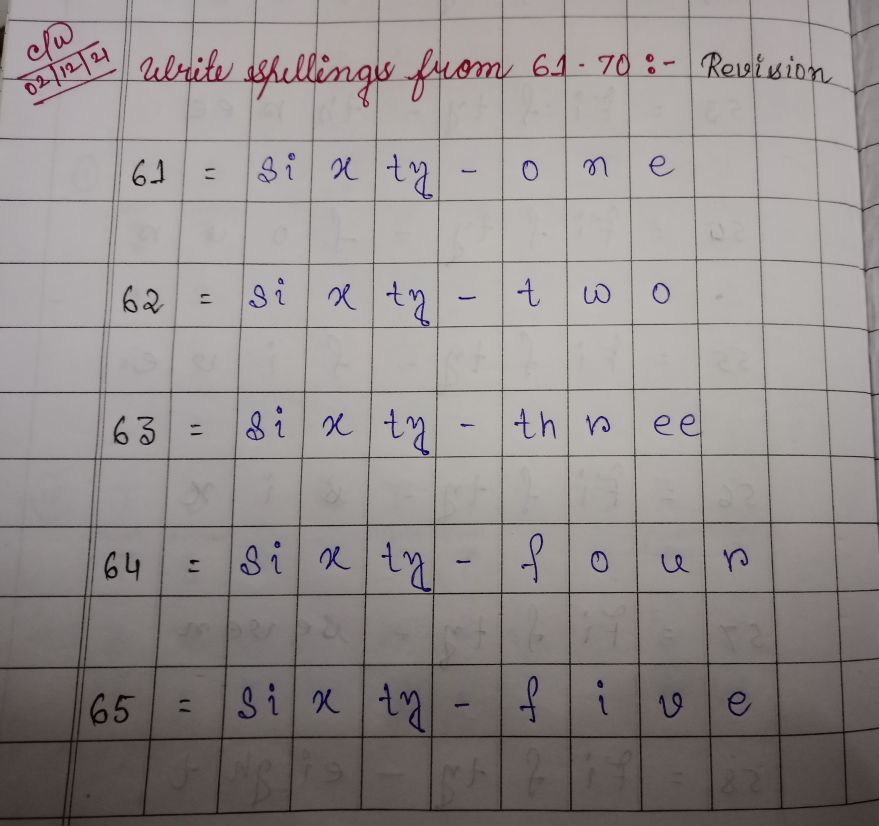 c/w
02/12/21
Write spellings from 61-70 :- Revision
61 = sixty-one
62 = sixty-two
63 = sixty-three
64 = sixty-four
65 = sixty-five